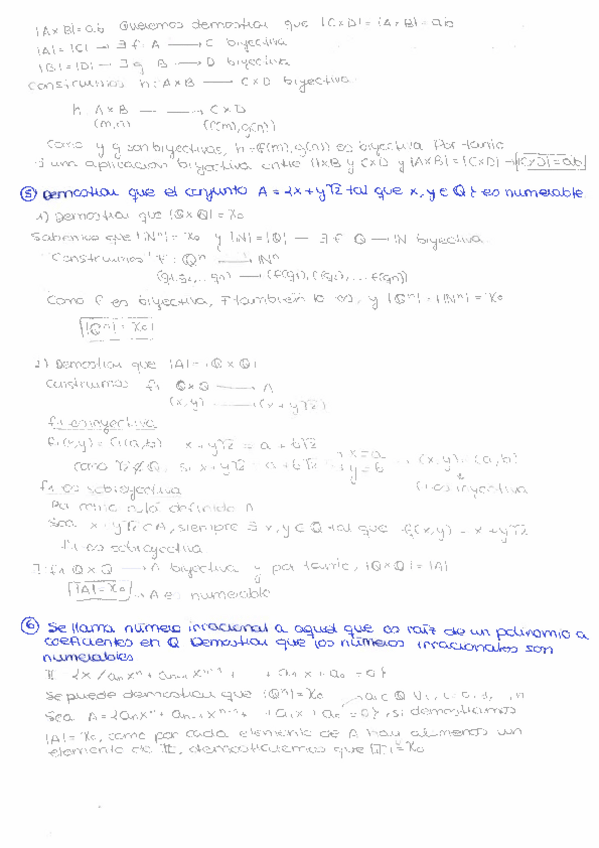 |A×B|=a.b Queremos demostrar que |C×D|=|A×B|=a.b
|A|=|C| → ∃ f: A ⟶ C biyectiva
|B|=|D| → ∃ g B ⟶ D biyectiva
Construimos h: A×B ⟶ C×D biyectiva
h: A×B ⟶ C×D
(m,n) (f(m),g(n))
Como y g son biyectivas, h=(f(m),g(n)) es biyectiva Por tanto
∃ una aplicación biyectiva entre A×B y C×D y |A×B|=|C×D| → |C×D|=a.b
⑤ Demostrar que el conjunto A={x+y√2 tal que x,y∈Q} es numerable
1) Demostrar que |Q×Q|=ℵ₀
Sabemos que |Nⁿ|=ℵ₀ y |N|=|Q| → ∃ f Q ⟶ N biyectiva
Construimos F: Qⁿ ⟶ Nⁿ
(q1,q2,...qn) ⟶ (f(q1),f(q2),...f(qn))
Como f es biyectiva, F también lo es, y |Qⁿ|=|Nⁿ|=ℵ₀
|Qⁿ|=ℵ₀
2) Demostrar que |A|=|Q×Q|
Construimos f1 Q×Q ⟶ A
(x,y) ⟶ (x+y√2)
f1 es inyectiva
f1(x,y)=f1(a,b) x+y√2=a+b√2
como √2∉Q, si x+y√2=a+b√2 → x=a y=b → (x,y)=(a,b)
f1 es inyectiva
f1 es sobreyectiva
Por como está definido A
Sea x+y√2∈A, siempre ∃ x,y∈Q tal que f1(x,y)=x+y√2
f1 es sobreyectiva
∃ f1 Q×Q ⟶ A biyectiva y por tanto, |Q×Q|=|A|
|A|=ℵ₀ → A es numerable
⑥ Se llama número irracional a aquel que es raíz de un polinomio a
coeficientes en Q Demostrar que los números irracionales son
numerables
{x/anxⁿ+an-1xⁿ⁻¹+ +a1x+a0=0}
Se puede demostrar que |Qⁿ|=ℵ₀ ai∈Q ∀i, i=0,1, ,n
Sea A={anxⁿ+an-1xⁿ⁻¹+ +a1x+a0=0}, si demostramos
|A|=ℵ₀, como por cada elemento de A hay al menos un
elemento de II, demostraremos que |II|=ℵ₀